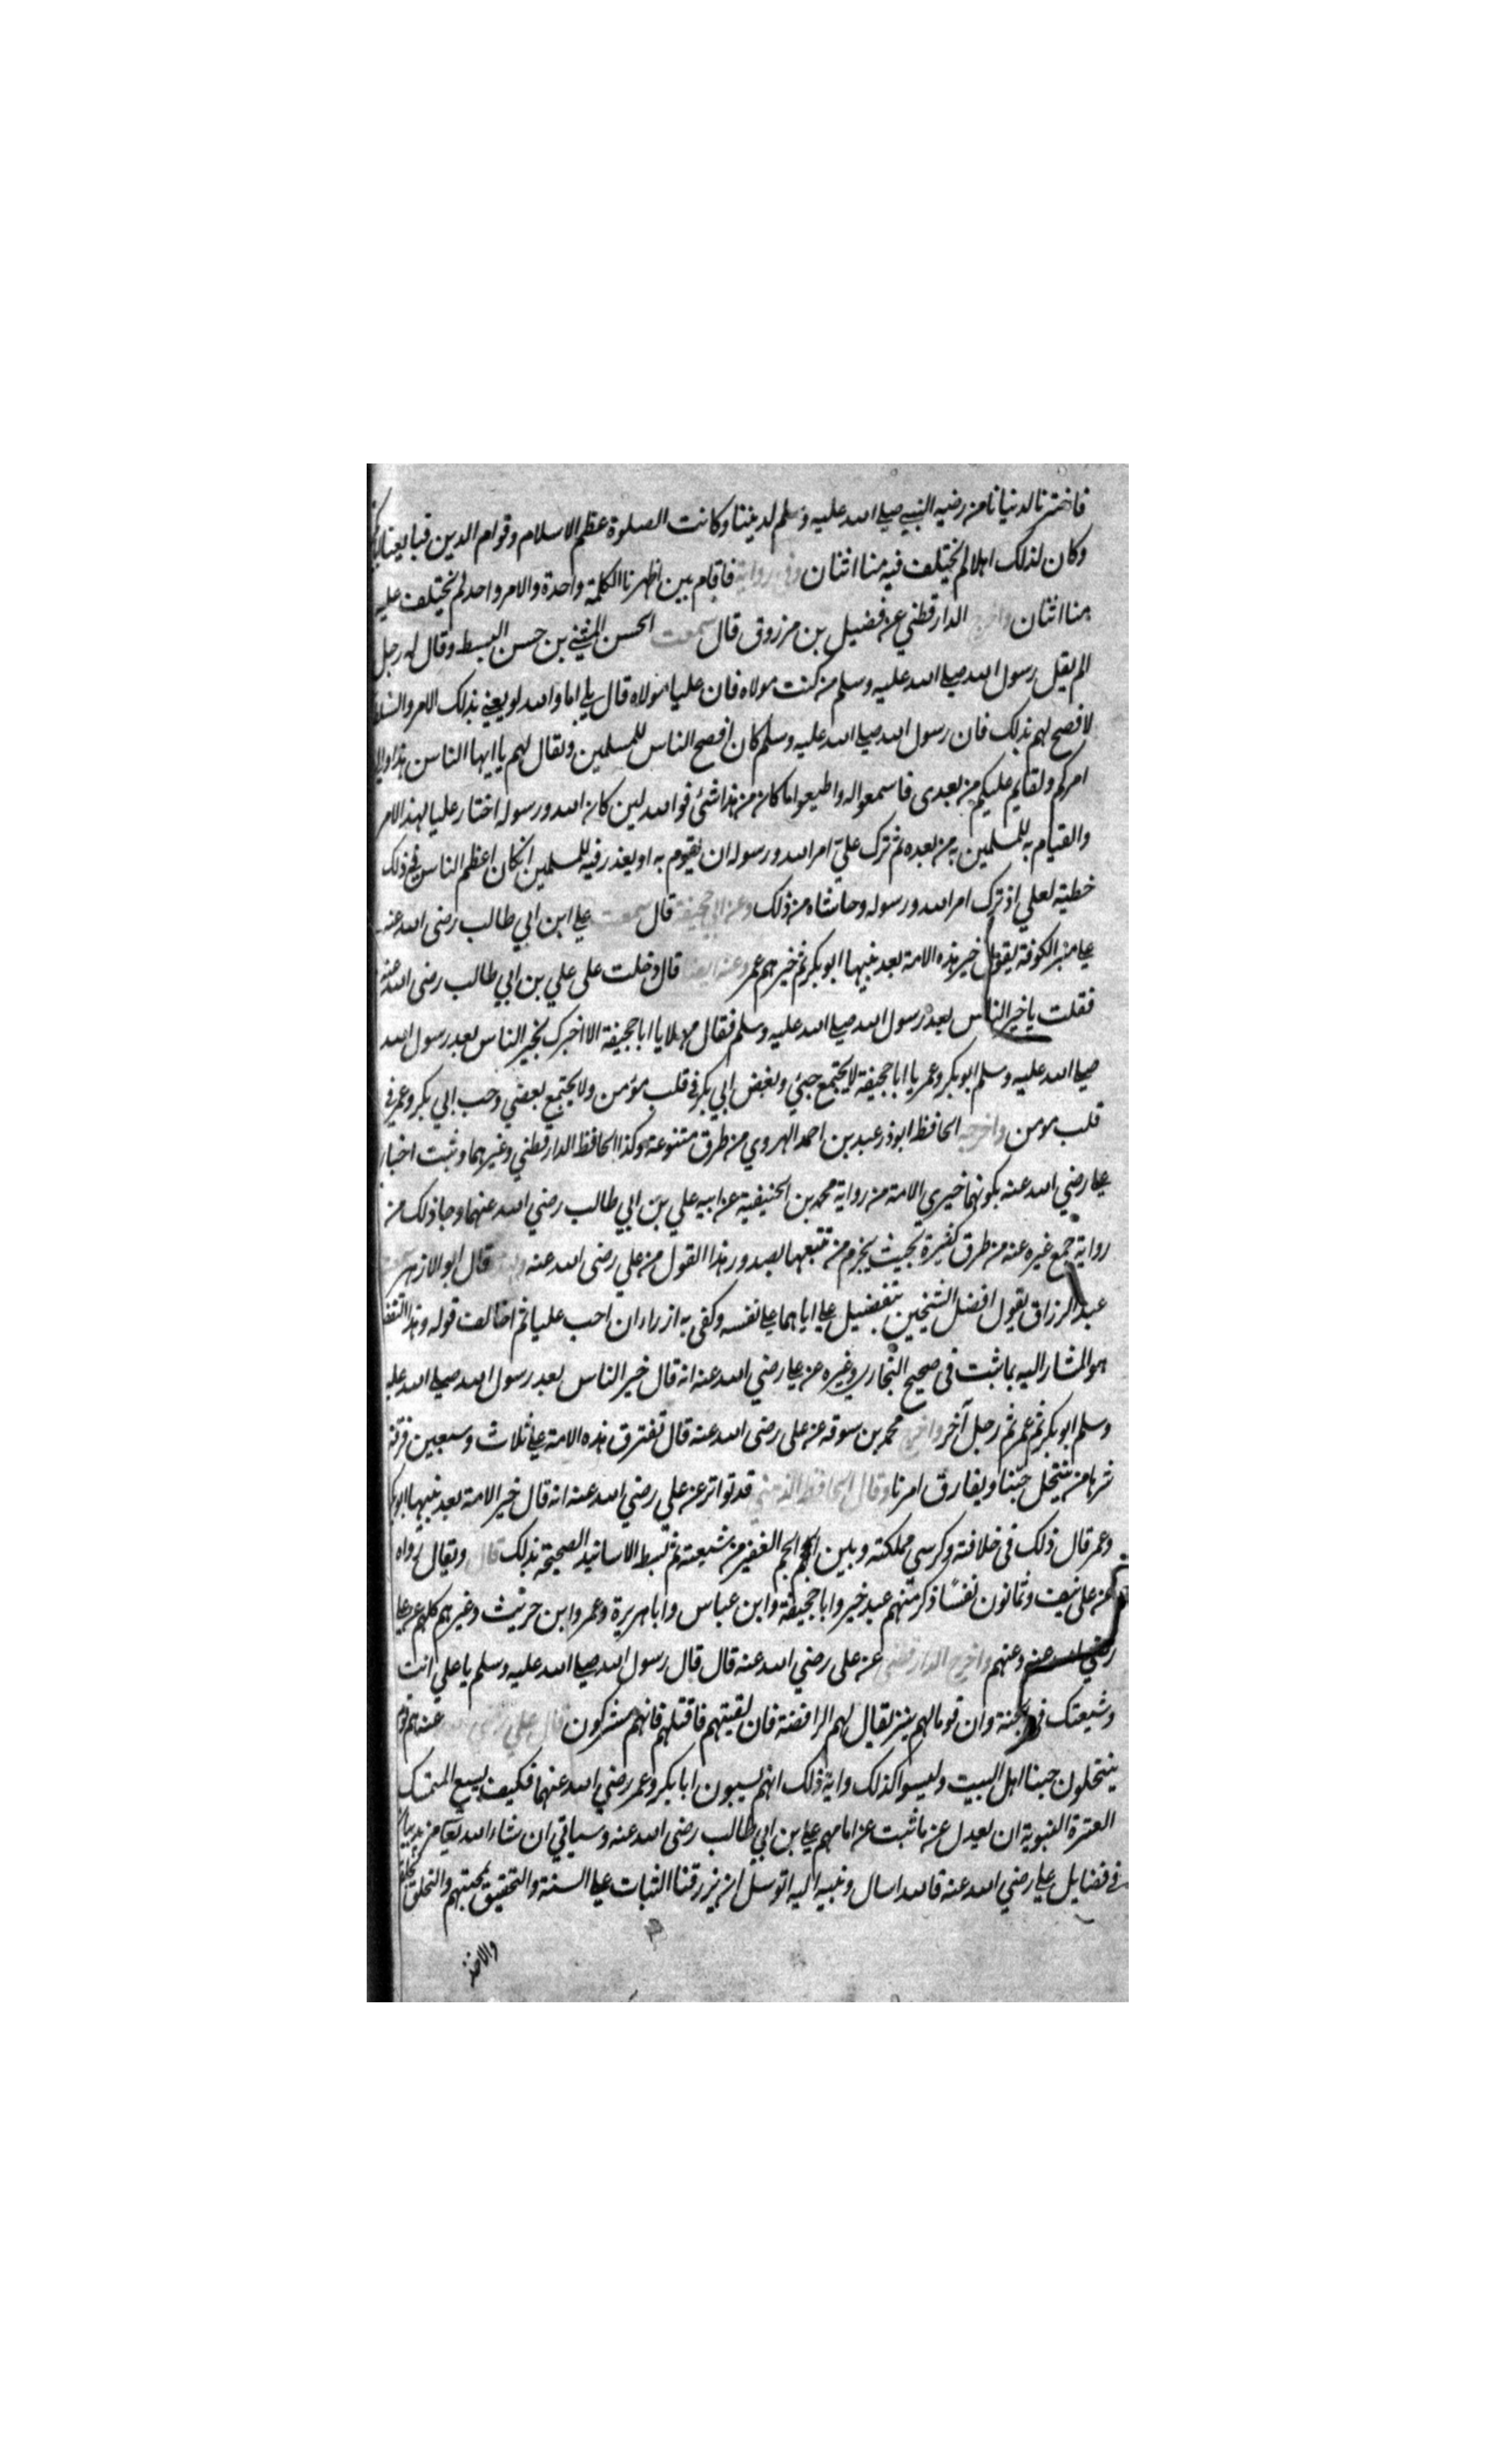 فاخترنا لدنيانا من رضيه النبي صلى الله عليه وسلم لديننا وكانت الصلوة عظم الاسلام وقوام الدين فبايعنا
وكان لذلك اهلا لم يختلف فيه منا اثنان وفي رواية فاقام بين اظهرنا الكلمة واحدة والامر واحد لم يختلف عليه
منا اثنان واخرج الدارقطني عن فضيل بن مرزوق قال سمعت الحسن المثني بن حسن السبط وقال له رجل
الم يقل رسول الله صلى الله عليه وسلم من كنت مولاه فان عليا مولاه قال بلى اما والله لو يعني بذلك الامر والسلط
لافصح لهم بذلك فان رسول الله صلى الله عليه وسلم كان افصح الناس للمسلمين ولقال لهم يا ايها الناس هذا
امركم والقايم عليكم من بعدى فاسمعوا له واطيعوا ما كان من هذا شئ فوالله لين كان الله ورسوله اختار عليا لهذا الامر
والقيام به للمسلمين من بعده ثم ترك علي امر الله ورسوله ان يقوم به او يعذر فيه للمسلمين ان كان اعظم الناس في ذلك
خطية لعلي اذ ترك امر الله ورسوله وحاشاه من ذلك وعن ابي جحيفة قال سمعت علي ابن ابي طالب رضى الله عنه
على منبر الكوفة يقول خير هذه الامة بعد نبيها ابو بكر ثم خيرهم عمر وعنه ايضا قال دخلت على علي بن ابي طالب رضى الله عنه
فقلت يا خير الناس بعد رسول الله صلى الله عليه وسلم فقال مهلا يا ابا جحيفة الا اخبرك بخير الناس بعد رسول الله
صلى الله عليه وسلم ابو بكر وعمر يا ابا جحيفة لا يجتمع حبي وبغض ابي بكر في قلب مؤمن ولا يجتمع بعضي وحب ابي بكر وعمر في
قلب مومن واخرجه الحافظ ابوذر عبد بن احمد الهروي من طرق متنوعة وكذا الحافظ الدارقطني وغيرهما وثبت اخبار
علي رضي الله عنه بكونهما خيري الامة من رواية محمد بن الحنيفية عن ابيه علي بن ابي طالب رضي الله عنهما وجا ذلك من
رواية جمع غيره عنه من طرق كثيرة بحيث يجزم من تتبعها بصدور هذا القول من علي رضى الله عنه قال ابو الازهر سمعت
عبد الرزاق يقول افضل الشيخين بتفضيل علي اياهما على نفسه وكفى به ازراء ان احب عليا ثم اخالف قوله وهذا التفض
هو المشار اليه بما ثبت فى صحيح البخاري وغيره عن علي رضي الله عنه انه قال خير الناس بعد رسول الله صلى الله عليه
وسلم ابو بكر ثم عمر ثم رجل آخر واخرج محمد بن سوقه عن على رضى الله عنه قال تفترق هذه الامة على ثلاث وسبعين فرقة
شرها من ينتحل حبنا ويفارق امرنا وقال الحافظ الذهبي قد تواتر عن علي رضي الله عنه انه قال خير الامة بعد نبيها ابو بكر
وعمر قال ذلك فى خلافته وكرسي مملكته وبين الجم الغفير من شيعته ثم بسط الاسانيد الصحيحة بذلك قال ويقال رواه
عن على نيف وثمانون نفسا ذكر منهم عبد خير وابا جحيفة وابن عباس وابا هريرة وعمرو ابن حريث وغيرهم كلهم عن علي
رضي الله عنه وعنهم واخرج الدارقطني عن على رضي الله عنه قال قال رسول الله صلى الله عليه وسلم يا علي انت
وشيعتك في الجنة وان قوما لهم نبز يقال لهم الرافضة فان لقيتهم فاقتلهم فانهم مشركون قال علي رضي الله عنه هم قوم
ينتحلون حبنا اهل البيت وليسوا كذلك واية ذلك انهم يسبون ابا بكر وعمر رضي الله عنهما فكيف يسع المتمسك
العترة النبوية ان يعدل عن ما ثبت عن امامهم علي بن ابي طالب رضى الله عنه وسياتي ان شاء الله تعالى مزيد بيان
في فضايل علي رضي الله عنه فالله اسال ونبيه اليه اتوسل ان يرزقنا الثبات على السنة والتحقيق بمحبتهم والتخلق
والاخذ